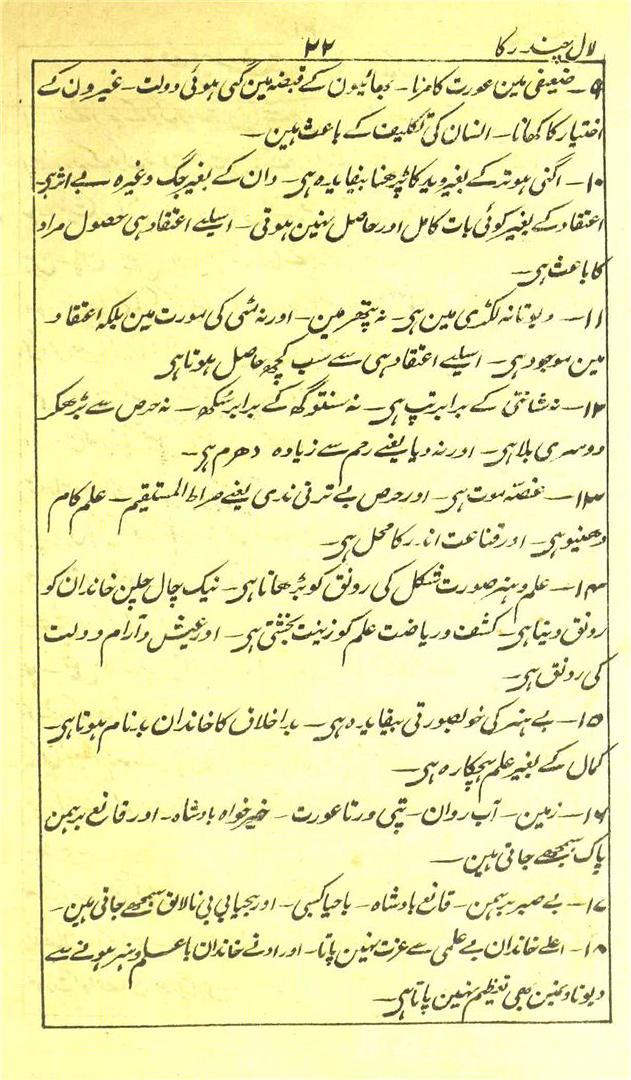 لال چندرکا ۲۲
۹۔ ضعیفی مین عورت کا مرنا۔ بھائیون کے قبضہ مین گئی ہوئی دولت۔ غیرون کے
اختیار کا کھانا۔ انسان کی تکلیف کے باعث ہین۔
۱۰۔ اگنی ہوتر کے بغیر وید کا پڑھنا بیفایدہ ہی۔ دان کے بغیر جگ وغیرہ بے اثر ہی
اعتقاد کے بغیر کوئی بات کامل اور حاصل نہین ہوتی۔ اسلیے اعتقاد ہی حصول مراد
کا باعث ہی۔
۱۱۔ دیوتا نہ لکڑی مین ہی۔ نہ پتھر مین۔ اور نہ مٹی کی مورت مین بلکہ اعتقاد
مین موجود ہی۔ اسلیے اعتقاد ہی سے سب کچھ حاصل ہوتا ہی
۱۲۔ نہ شانتی کے برابر تپ ہی۔ نہ سنتوگھ کے برابر سُکھ۔ نہ حرص سے بڑھکر
دوسری بلا ہی۔ اور نہ دیا یعنے رحم سے زیادہ دھرم ہی۔
۱۳۔ غصّہ موت ہی۔ اور حرص بے ترنی ندی یعنے صراط المستقیم۔ علم کام
دھنیو ہی۔ اور قناعت اندر کا محل ہی۔
۱۴۔ علم و ہنر صورت شکل کی رونق کو بڑھاتا ہی۔ نیک چال چلن خاندان کو
رونق دیتا ہی۔ کشف و ریاضت علم کو زینت بخشتی ہی۔ اور عیش و آرام دولت
کی رونق ہی۔
۱۵۔ بے ہنر کی خوبصورتی بیفایدہ ہی۔ بد اخلاق کا خاندان بدنام ہوتا ہی۔
کمال کے بغیر علم ہیچکارہ ہی۔
۱۶۔ زمین۔ آب روان۔ پتی ورتا عورت۔ خیرخواہ بادشاہ۔ اور قانع برہمن
پاک سمجھے جاتی ہین۔
۱۷۔ بے صبر برہمن۔ قانع بادشاہ۔ باحیا کسبی۔ اور بیحیا بی بی نالائق سمجھے جاتی ہین۔
۱۸۔ اعلے خاندان بے علمی سے عزت نہین پاتا۔ اور ادنے خاندان باعلم و ہنر ہونے سے
دیوتاونمین بھی تعظیم نہین پاتا ہی۔